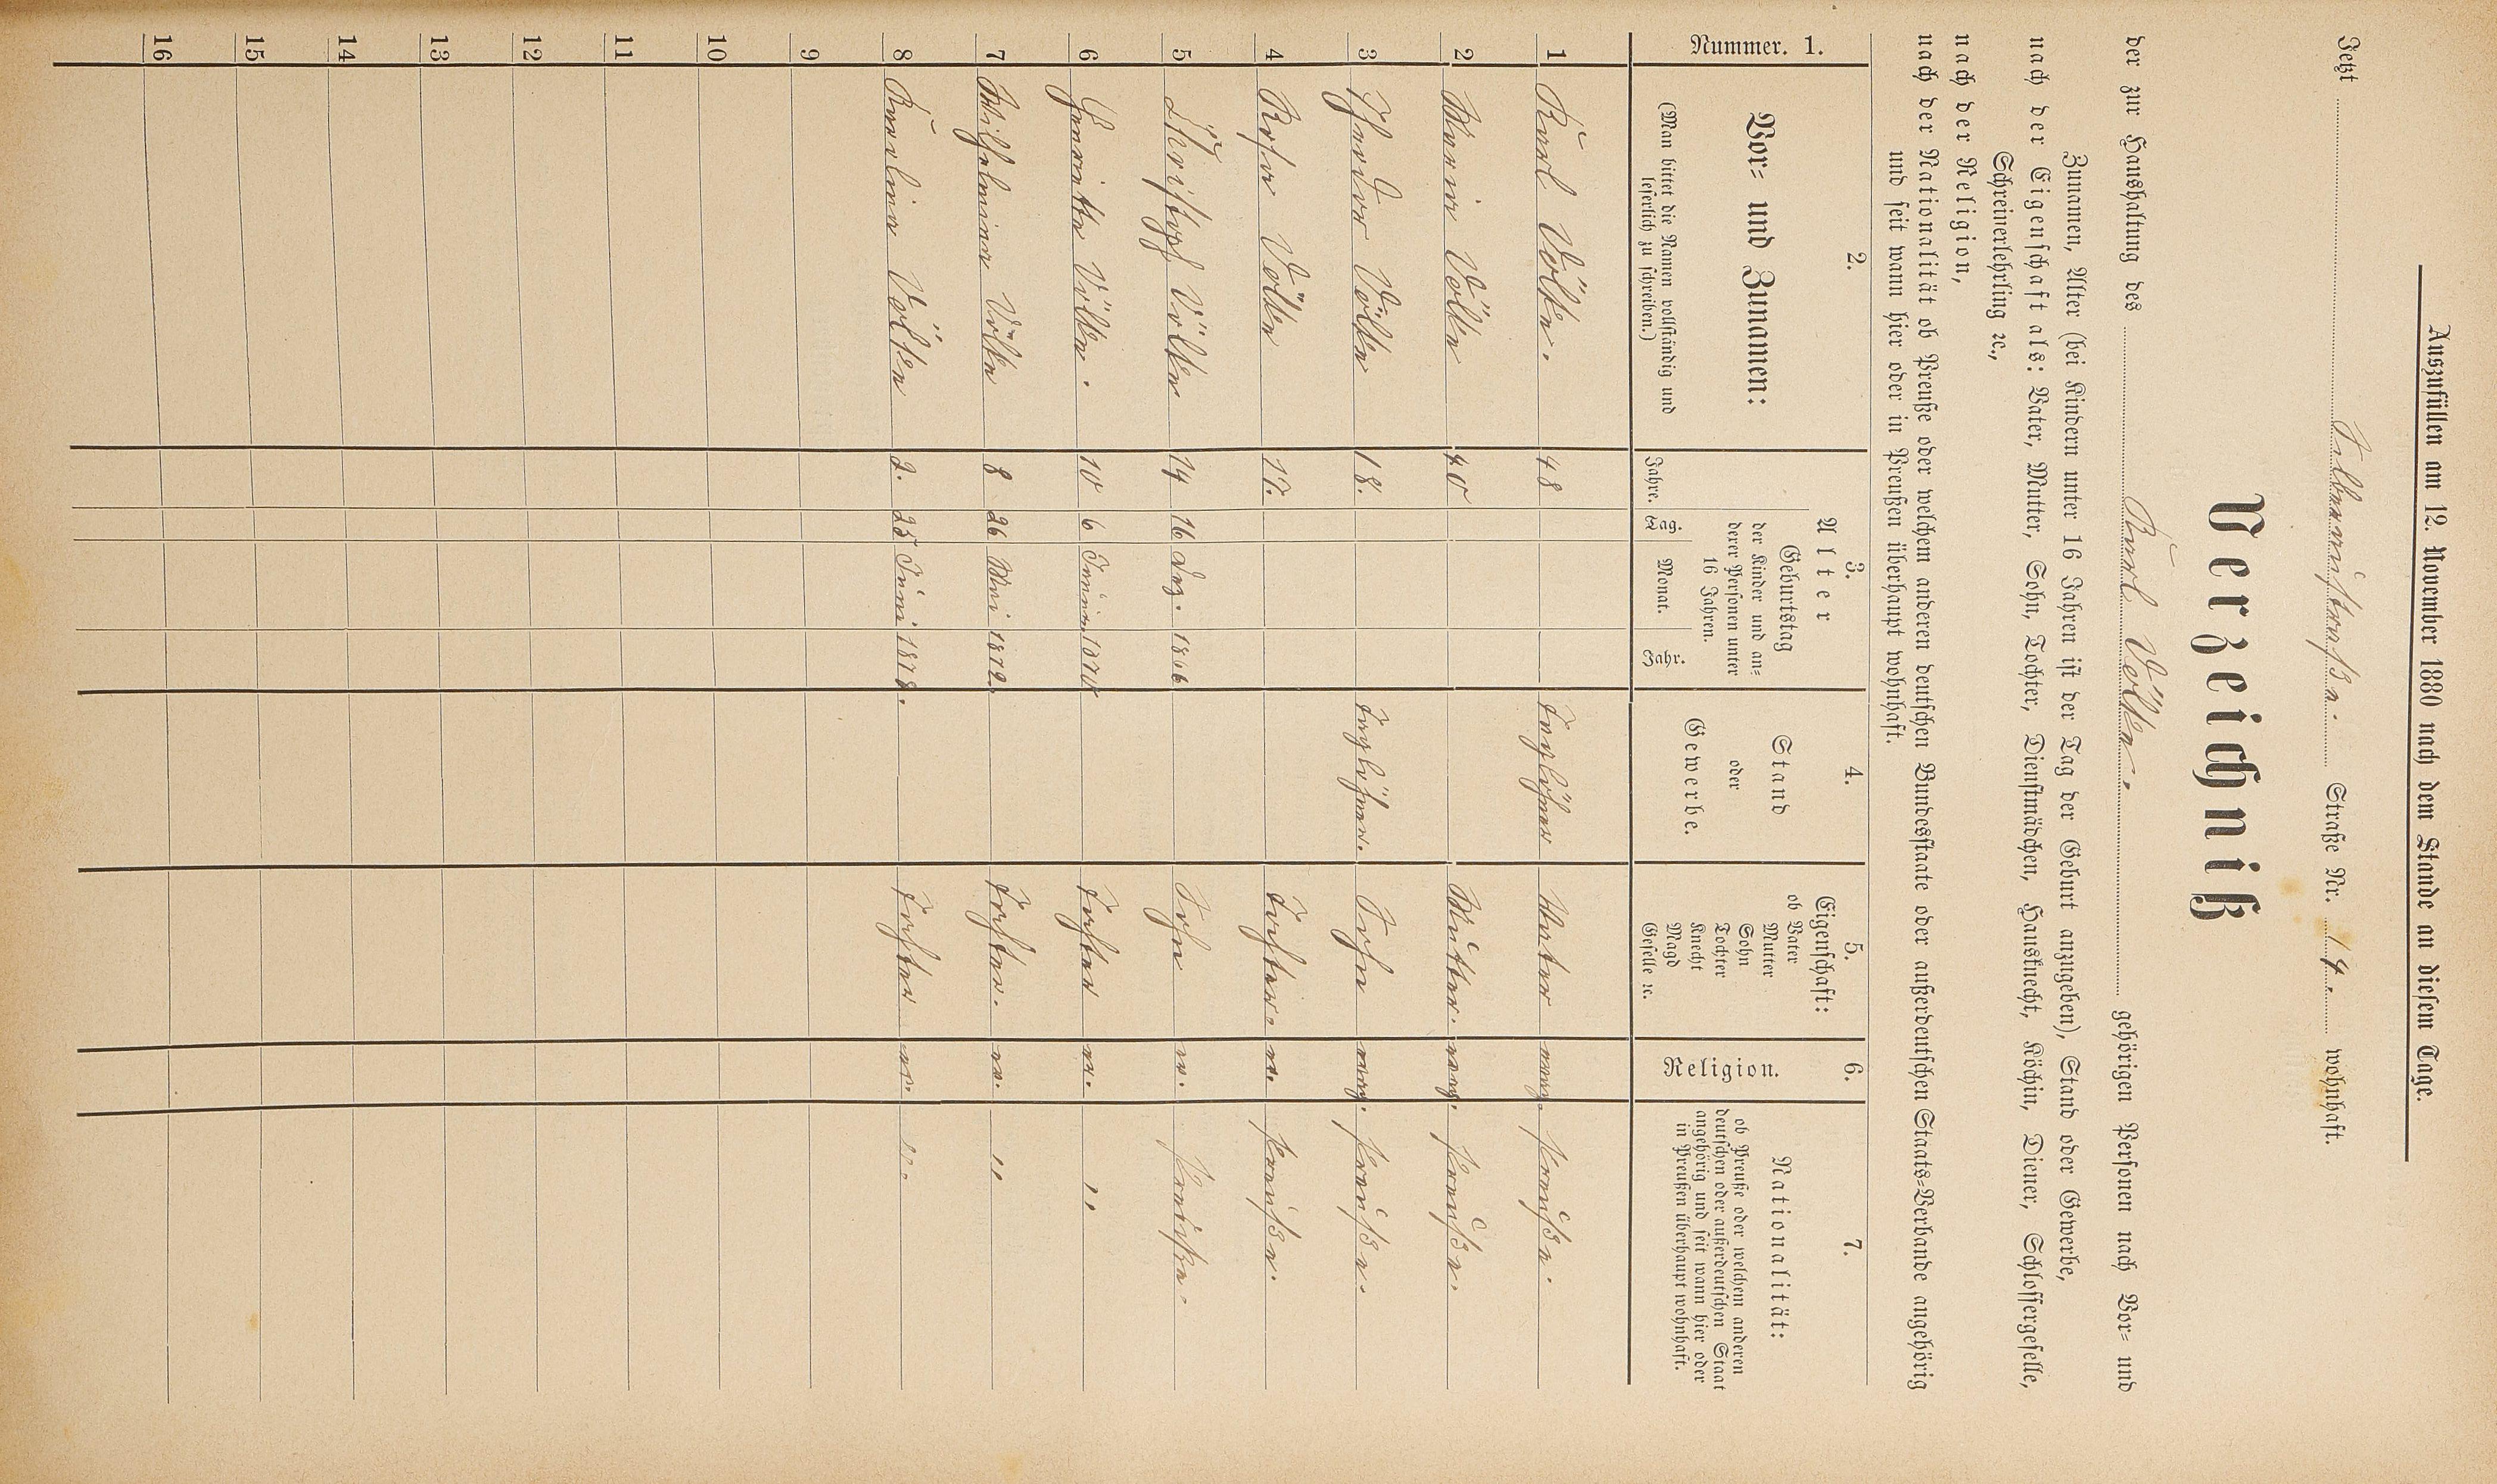 Auszufüllen am 12. November 1880 nach dem Stande an diesem Tage.
Jetzt Straße Nr. 14. wohnhaft.
Verzeichniß
der zur Haushaltung des Karl Völker. gehörigen Personen nach Vor= und
Zunamen, Alter (bei Kindern unter 16 Jahren ist der Tag der Geburt anzugeben), Stand oder Gewerbe,
nach der Eigenschaft als: Vater, Mutter, Sohn, Tochter, Dienstmädchen, Hausknecht, Köchin, Diener, Schlossergeselle,
Schreinerlehrling ꝛc.,
nach der Religion,
nach der Nationalität ob Preuße oder welchem anderen deutschen Bundesstaate oder außerdeutschen Staats=Verbande angehörig
und seit wann hier oder in Preußen überhaupt wohnhaft.
Nummer. 1.
2.
Vor= und Zunamen:
(Man bittet die Namen vollständig und
leserlich zu schreiben.)
3.
Alter
Jahre.
Geburtstag
der Kinder und an=
derer Personen unter
16 Jahren.
Tag. Monat. Jahr.
4.
Stand
oder
Gewerbe.
5.
Eigenschaft:
ob Vater
Mutter
Sohn
Tochter
Knecht
Magd
Geselle ꝛc.
6.
Religion.
7.
Nationalität:
ob Preuße oder welchem anderen
deutschen oder außerdeutschen Staat
angehörig und seit wann hier oder
in Preußen überhaupt wohnhaft.
1 Karl Völker. 48 Taglöhner Vater evang. Preuße.
2 Maria Völker 40 Mutter. evang. Preuße.
3 Völker 18. Taglöhner. Sohn evang. Preuße.
4 Völker 17. Tochter. ev. Preuße.
5 Christoph Völker 14 16 Dez. 1866 Sohn ev. Preuße.
6 Henriette Völker. 10 6 1870 Tochter ev. "
7 Wilhelmine Völker 8 26 Mai 1872. Tochter. ev. "
8 Karoline Völker 2. 25 Juni 1878. Tochter ev. "
9
10
11
12
13
14
15
16